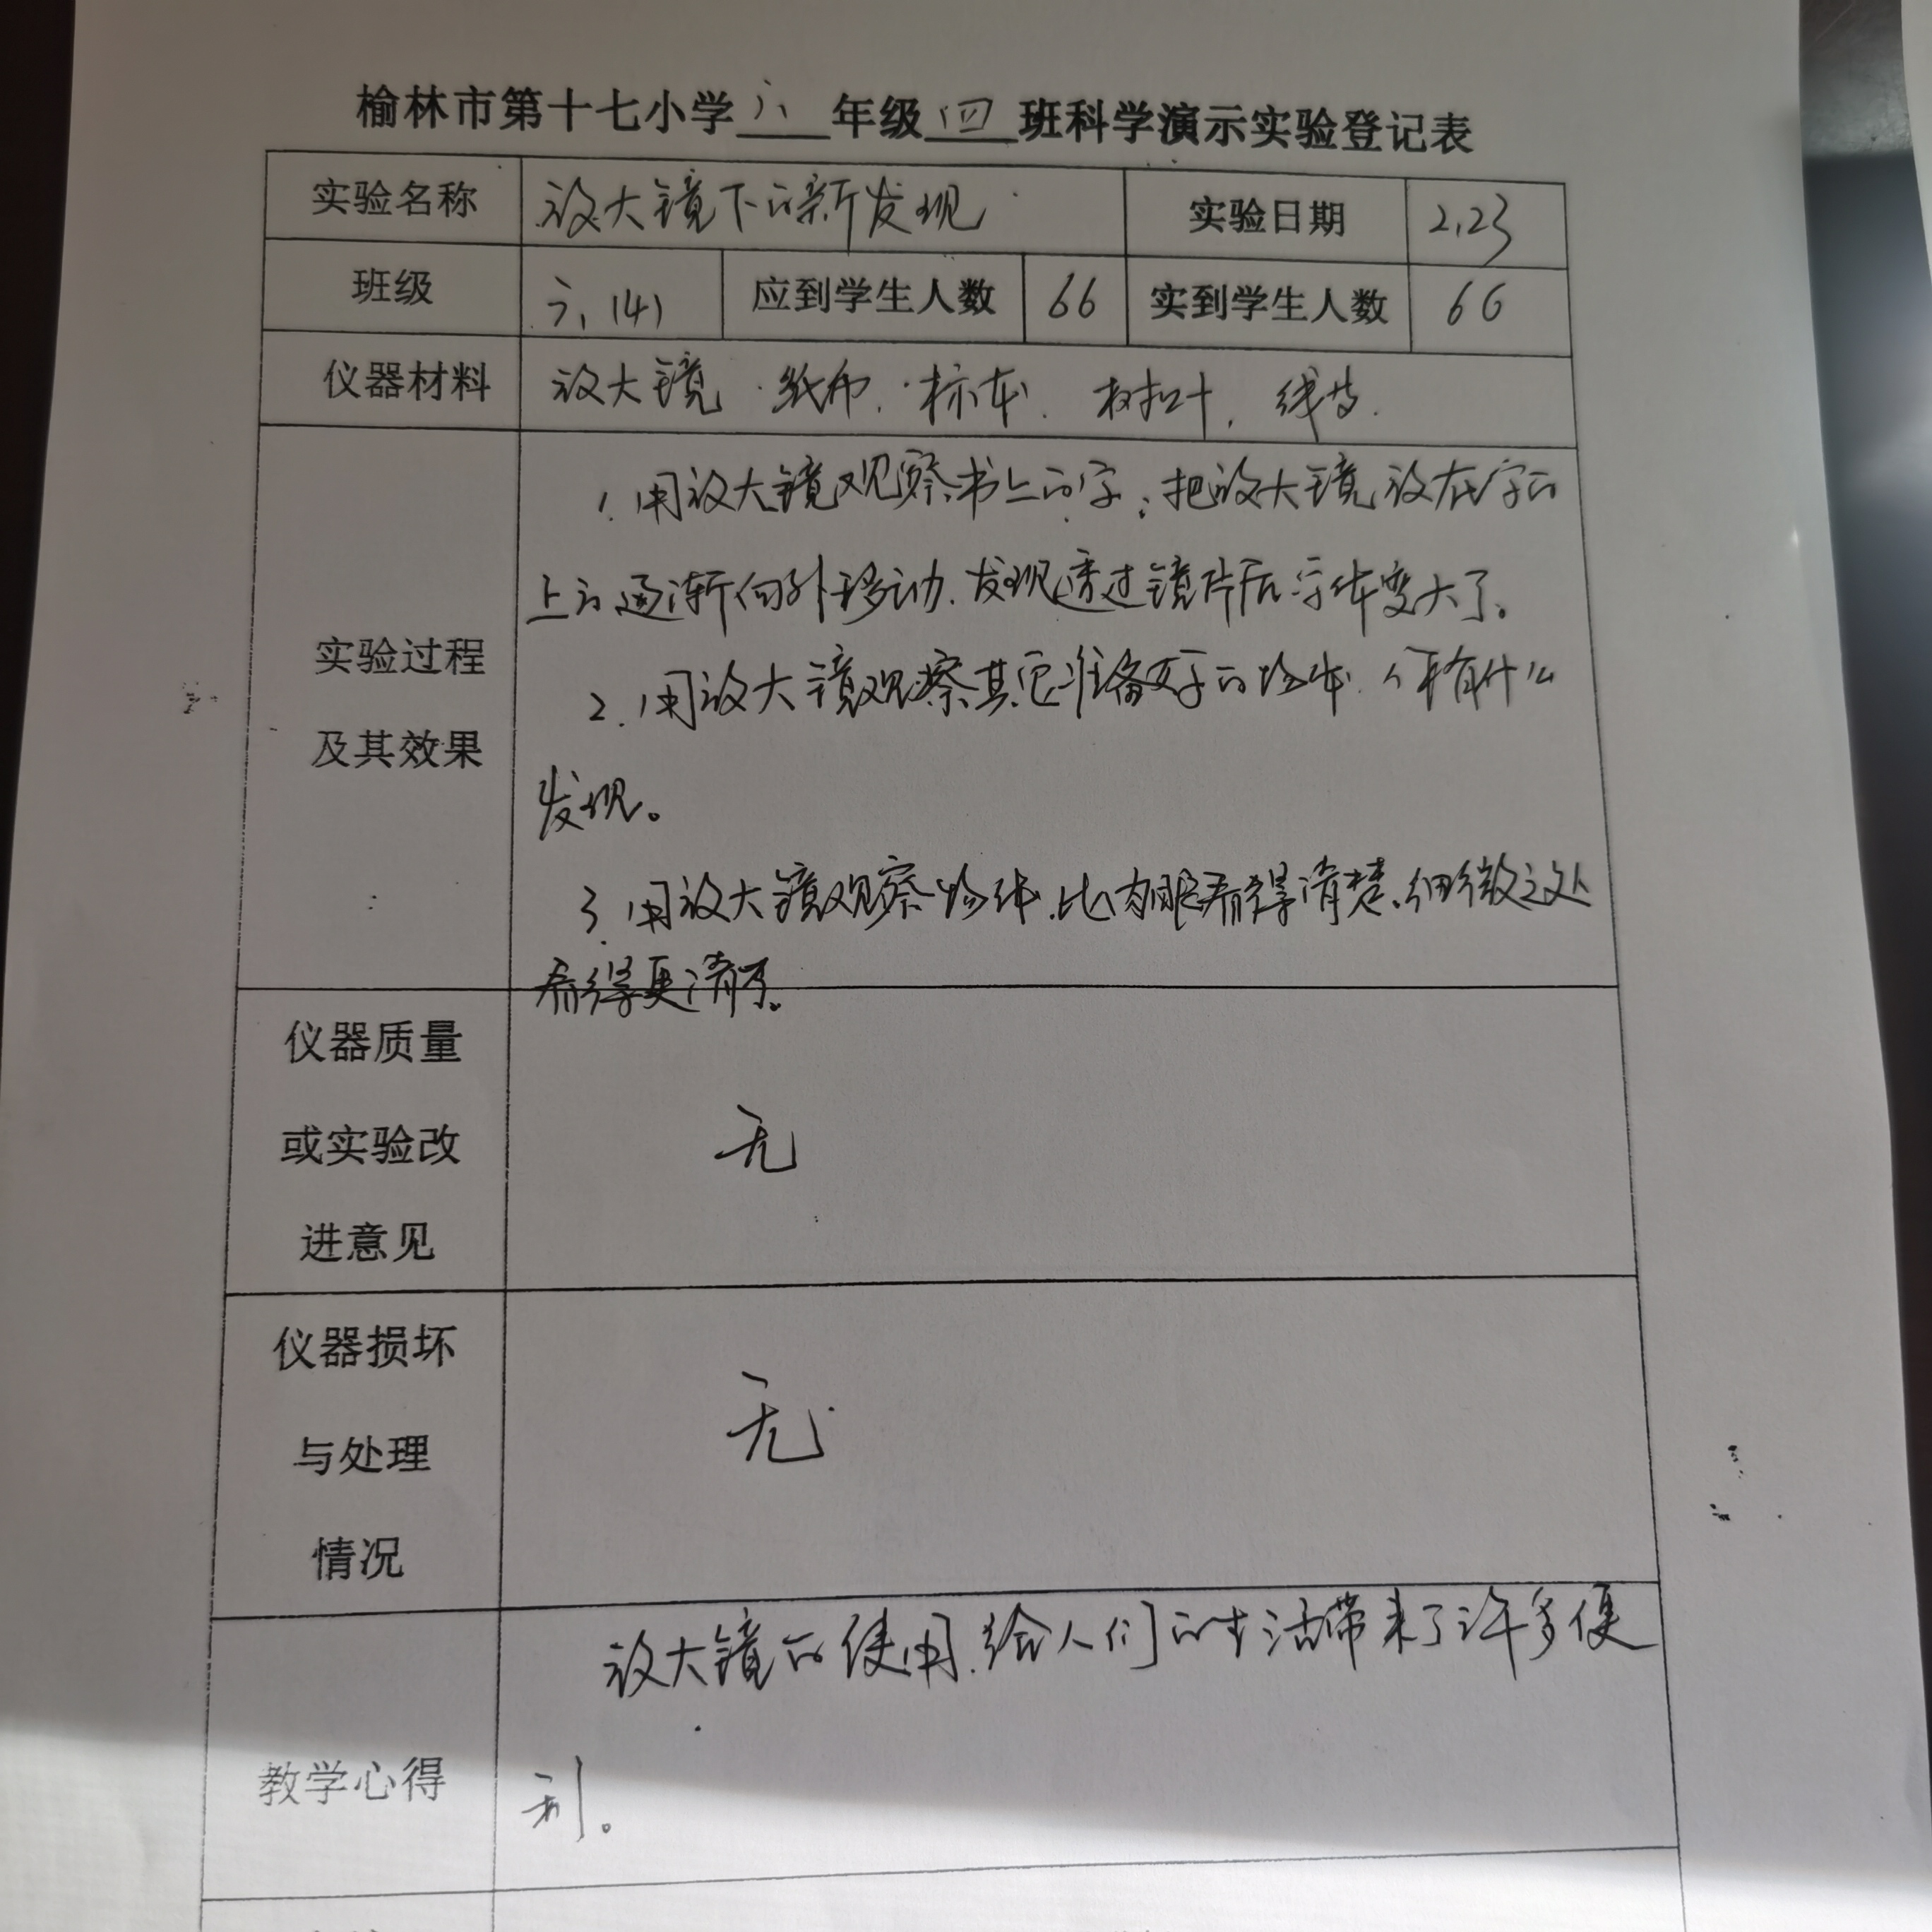 榆林市第十七小学六年级四班科学演示实验登记表
实验名称 放大镜下的新发现 实验日期 2.23
班级 六.(4) 应到学生人数 66 实到学生人数 66
仪器材料 放大镜.纸币.标本.树叶.
1.用放大镜观察书上的字,把放大镜放在字的
上方逐渐向外移动.发现透过镜片后字体变大了。
实验过程
2.用放大镜观察其它准备好的物体. 有什么
及其效果
发现。
3.用放大镜观察物体.比肉眼看得清楚.细微之处
看得更清
仪器质量
或实验改 无
进意见
仪器损坏
与处理 无
情况
放大镜的使用.给人们的生活带来了许多便
教学心得
利。